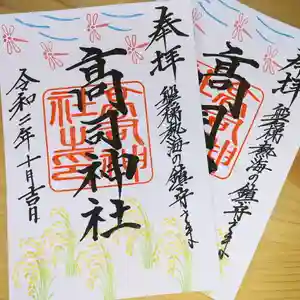 奉拝
磐梯熱海の鎮守さま
高司神社
令和二年十月吉日
奉拝
磐梯熱海の鎮守さま
高司